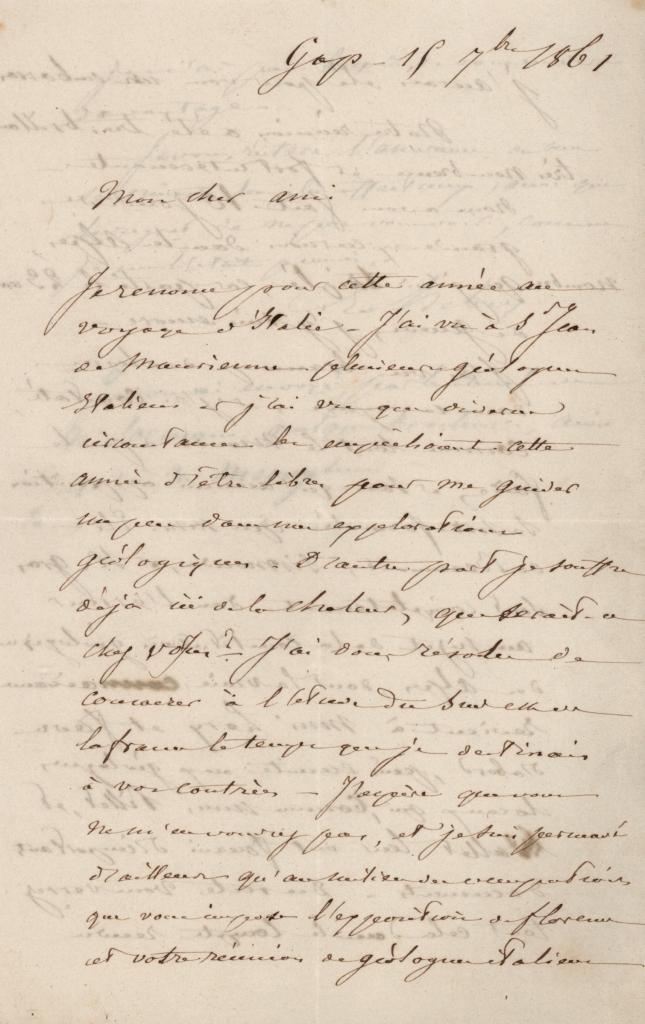 Gap - 15 7bre 1861
Mon cher ami
Je renonce pour cette année au
voyage d'Italie - J'ai vu à St Jean
de Maurienne plusieurs géologues
Italiens et j'ai vu que diverses
circonstances les empêchaient cette
année d'être libres pour me guider
un peu dans mes explorations
géologiques - D'autre part je souffre
déjà ici de la chaleur, que serait-ce
chez vous? - J'ai donc résolu de
consacrer à l'étude du Sud est de
la france le temps que je destinais
à vos contrées - J'espère que vous
ne m'en voudrez pas, et je suis persuadé
d'ailleurs qu'au milieu des occupations
que vous impose l'exposition de florence
et votre réunion de géologues italiens